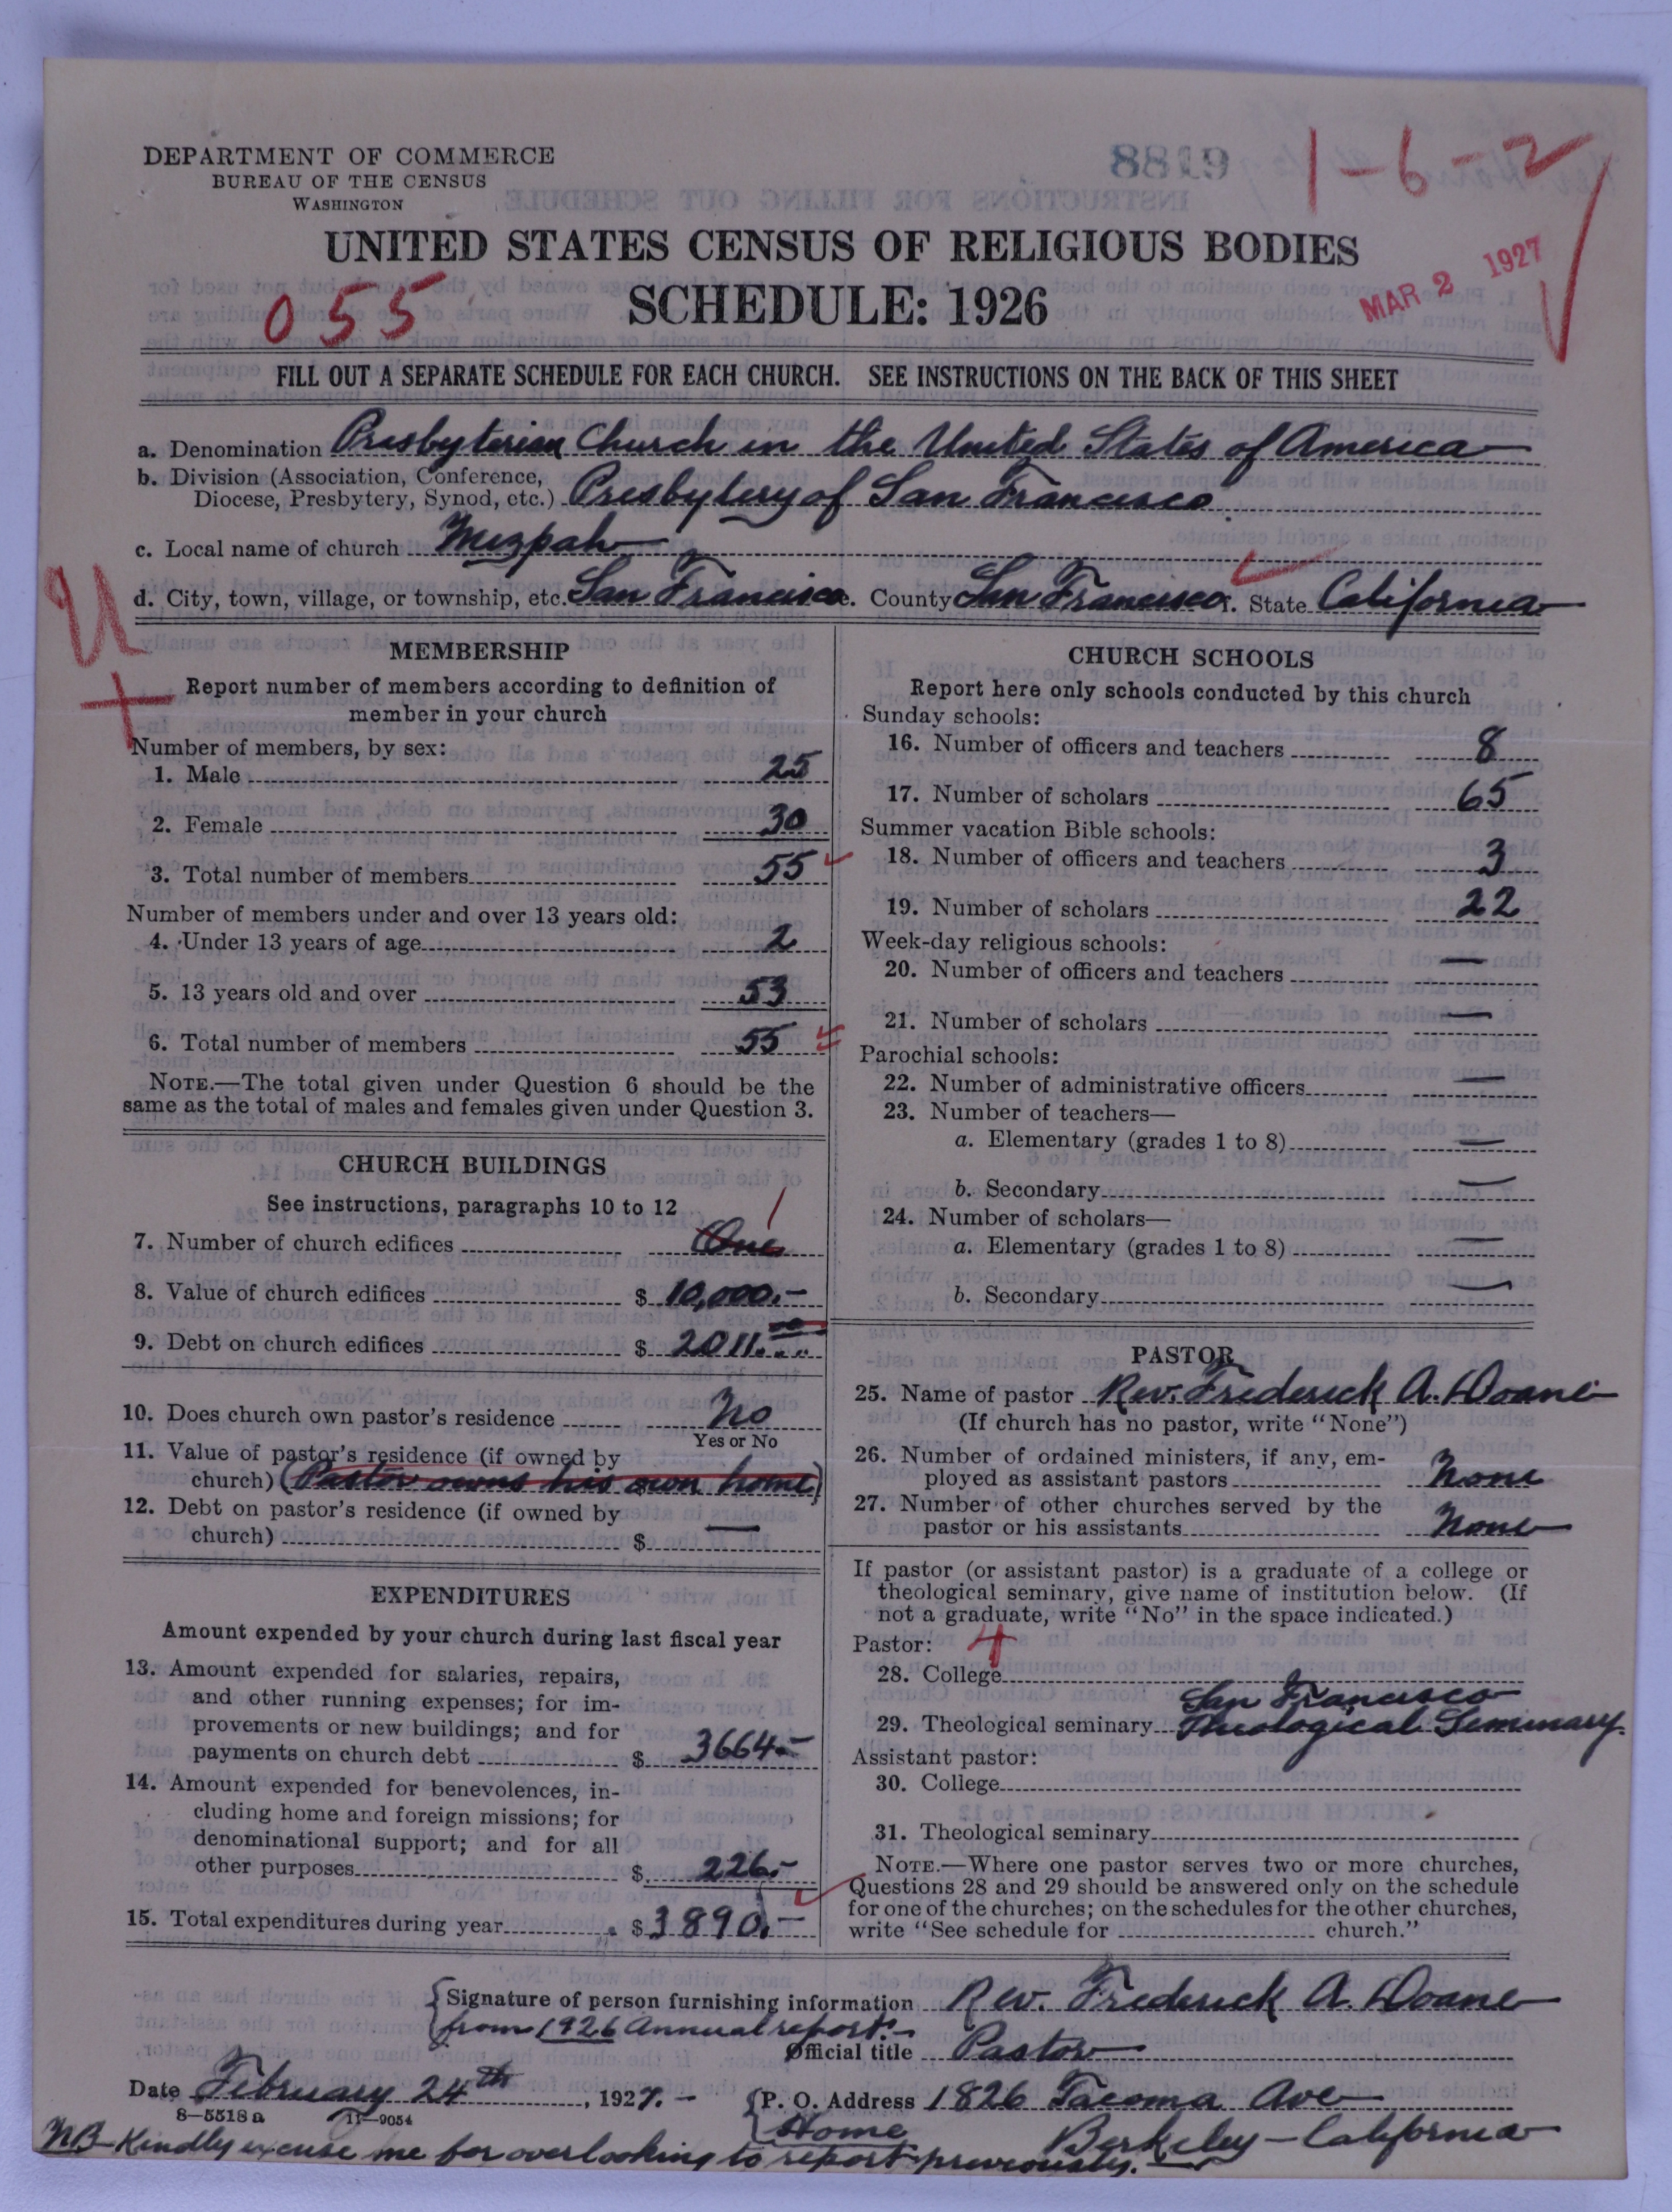 DEPARTMENT OF COMMERCE
BUREAU OF THE CENSUS
WASHINGTON
8819
1-6-2
UNITED STATES CENSUS OF RELIGIOUS BODIES
SCHEDULE: 1926
055
MAR 2 1927
FILL OUT A SEPARATE SCHEDULE FOR EACH CHURCH. SEE INSTRUCTIONS ON THE BACK OF THIS SHEET
a. Denomination Presbyterian Church in the United States of America
b. Division (Association, Conference,
Diocese, Presbytery, Synod, etc.) Presbytery of San Francisco
c. Local name of church Mizpah
d. City, town, village, or township, etc. San Francisco e. County San Francisco f. State California
U
MEMBERSHIP
Report number of members according to definition of
member in your church
Number of members, by sex:
1. Male 25
2. Female 30
3. Total number of members 55
Number of members under and over 13 years old:
4. Under 13 years of age 2
5. 13 years old and over 53
6. Total number of members 55
NOTE.—The total given under Question 6 should be the
same as the total of males and females given under Question 3.
CHURCH BUILDINGS
See instructions, paragraphs 10 to 12
7. Number of church edifices One 1
8. Value of church edifices $ 10,000.-
9. Debt on church edifices $ 2011.00
10. Does church own pastor's residence No
Yes or No
11. Value of pastor's residence (if owned by
church) (Pastor owns his own home)
12. Debt on pastor's residence (if owned by
church) $ —
EXPENDITURES
Amount expended by your church during last fiscal year
13. Amount expended for salaries, repairs,
and other running expenses; for im-
provements or new buildings; and for
payments on church debt $ 3664.-
14. Amount expended for benevolences, in-
cluding home and foreign missions; for
denominational support; and for all
other purposes $ 226.-
15. Total expenditures during year $ 3890.-
CHURCH SCHOOLS
Report here only schools conducted by this church
Sunday schools:
16. Number of officers and teachers 8
17. Number of scholars 65
Summer vacation Bible schools:
18. Number of officers and teachers 3
19. Number of scholars 22
Week-day religious schools:
20. Number of officers and teachers —
21. Number of scholars —
Parochial schools:
22. Number of administrative officers —
23. Number of teachers—
a. Elementary (grades 1 to 8) —
b. Secondary —
24. Number of scholars—
a. Elementary (grades 1 to 8) —
b. Secondary —
PASTOR
25. Name of pastor Rev. Frederick A. Doane
(If church has no pastor, write "None")
26. Number of ordained ministers, if any, em-
ployed as assistant pastors None
27. Number of other churches served by the
pastor or his assistants None
If pastor (or assistant pastor) is a graduate of a college or
theological seminary, give name of institution below. (If
not a graduate, write "No" in the space indicated.)
Pastor: 4
28. College
San Francisco
29. Theological seminary Theological Seminary.
Assistant pastor:
30. College
31. Theological seminary
NOTE.—Where one pastor serves two or more churches,
Questions 28 and 29 should be answered only on the schedule
for one of the churches; on the schedules for the other churches,
write "See schedule for church."
Signature of person furnishing information Rev. Frederick A. Doane
from 1926 Annual report.-
Official title Pastor
Date February 24th, 1927.-
P. O. Address 1826 Tacoma Ave
8-5518a 11-9054
Home Berkeley - California
NB- Kindly excuse me for overlooking to report previously.